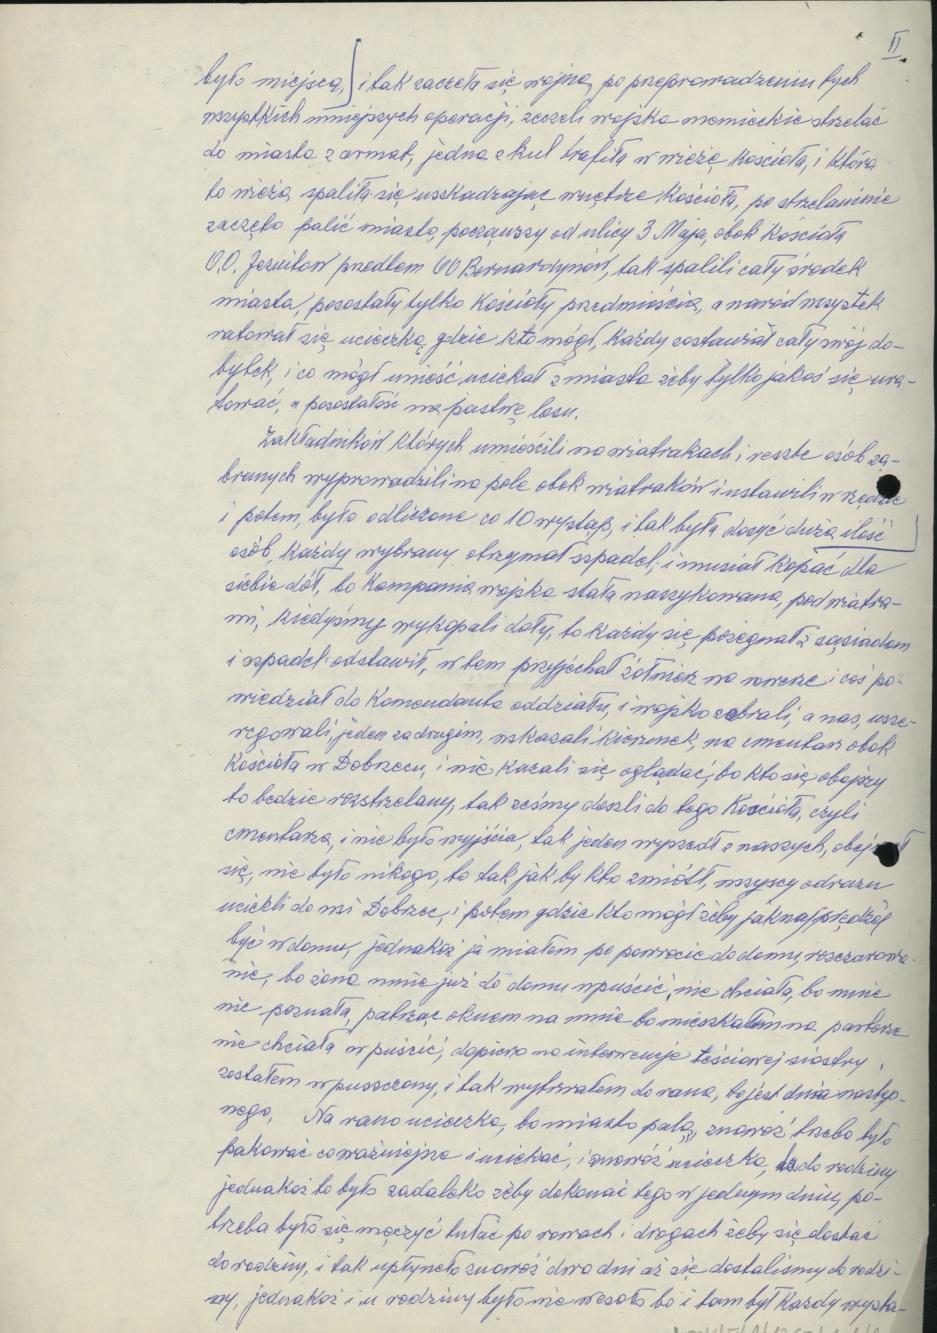 II.
było miejsca, i tak zaczęła się wojna, po przeprowadzeniu tych
wszystkich mniejszych operacji, zeczeli wojska niemieckie strzelać
do miasta z armat, jedna z kul trafiła w wieżę Kościoła, i która
to wieża spaliła się uszkadzając wnętrze Kościoła, po strzelaninie
zaczęto palić miasto, począwszy od ulicy 3 Maja, obok Kościoła
O.O. Jezuitów przedtem OO Bernardynów, tak spalili cały środek
miasta, pozostały tylko Kościoły przedmieścia, a naród wszystek
ratował się ucieczką gdzie kto mógł, każdy zostawiał cały swój do-
bytek, i co mógł unieść uciekał z miasta żeby tylko jakoś się ura-
tować, a pozostałość na pastwę losu.
Zakładników których umieścili na wiatrakach, i resztę osób za-
branych wyprowadzili na pole obok wiatraków i ustawili w rzędzie
i potem, było odliczone co 10 wystąp, i tak była dosyć duża ilość
osób, każdy wybrany otrzymał szpadel, i musiał kopać dla
siebie dół, bo Kompania wojska stała naszykowana, pod wiatra-
mi, kiedyśmy wykopali doły, to każdy się pożegnał z sąsiadem
i szpadel odstawił, w tem przyjechał żołnierz na rowerze i coś po-
wiedział do Komendanta oddziału, i wojsko zebrali, a nas, usze-
regowali, jeden za drugim, wskazali kierunek, na cmentarz obok
Kościoła w Dobrzecu, i nie kazali się oglądać, bo kto się obejrzy
to będzie rozstrzelany, tak żeśmy doszli do tego Kościoła, czyli
cmentarza, i nie było wyjścia, tak jeden wyszedł z naszych, obejrzał
się, nie było nikogo, to tak jak by kto zmiótł, wszyscy odrazu
uciekli do wsi Dobrzec, i potem gdzie kto mógł żeby jaknajprędzej
być w domu, jednakoż ja miałem po powrocie do domu, rozczarowa-
nie, bo żona mnie już do domu wpuścić, nie chciała, bo mnie
nie poznała, patrząc oknem na mnie bo mieszkałem na parterze
nie chciała wpuścić, dopiero na interwencje teściowej siostry,
zostałem wpuszczony, i tak wytrwałem do rana, to jest dnia następ-
nego. Na rano ucieczka, bo miasto palą, znowóż trzeba było
pakować co ważniejsze i uciekać, i znowóż ucieczka, do rodziny
jednakoż to było zadaleko żeby dokonać tego w jednym dniu, po-
trzeba było się męczyć tułać po rowach i drogach żeby się dostać
do rodziny, i tak upłynęło znowóż dwa dni aż się dostaliśmy do rodzi-
ny, jednakoż i u rodziny było nie wesoło bo i tam był każdy wystra-